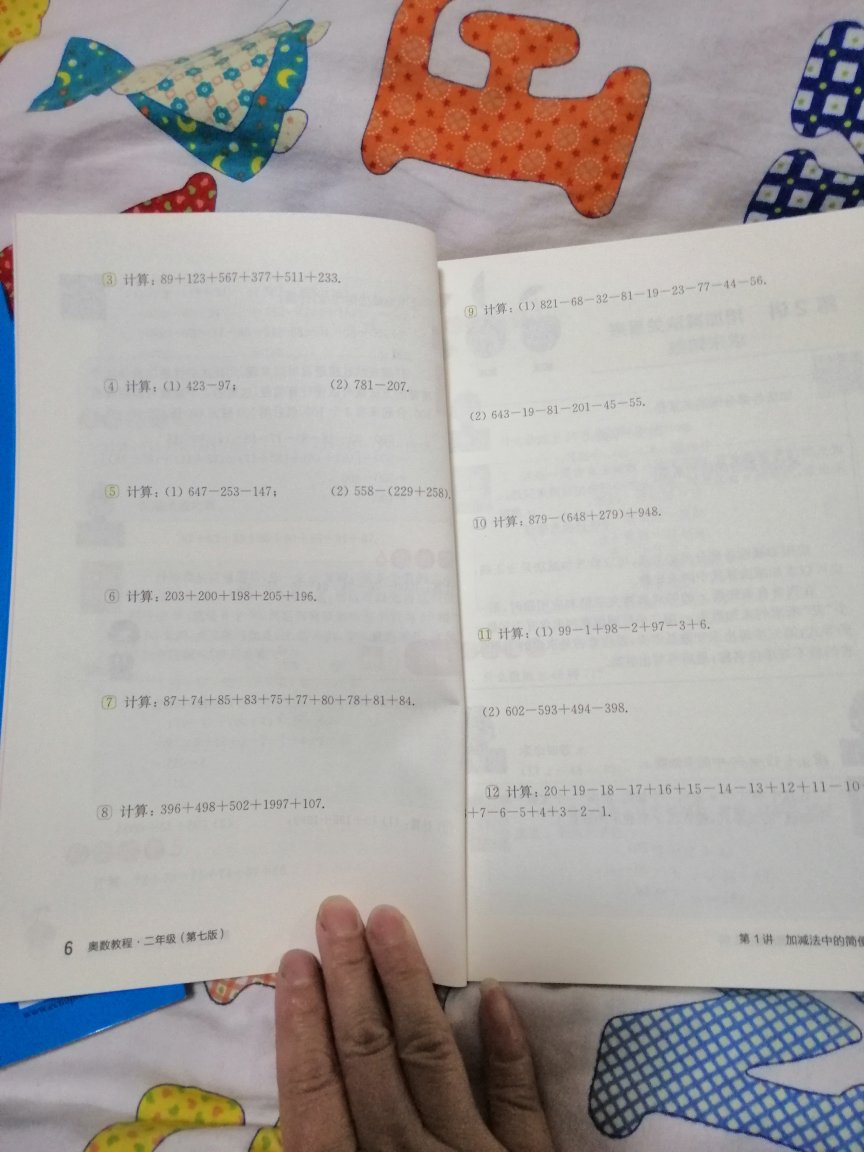 ③ 计算：89+123+567+377+511+233.
④ 计算：(1) 423-97； (2) 781-207.
⑤ 计算：(1) 647-253-147； (2) 558-(229+258).
⑥ 计算：203+200+198+205+196.
⑦ 计算：87+74+85+83+75+77+80+78+81+84.
⑧ 计算：396+498+502+1997+107.
6 奥数教程·二年级(第七版)
⑨ 计算：(1) 821-68-32-81-19-23-77-44-56.
(2) 643-19-81-201-45-55.
⑩ 计算：879-(648+279)+948.
⑪ 计算：(1) 99-1+98-2+97-3+6.
(2) 602-593+494-398.
⑫ 计算：20+19-18-17+16+15-14-13+12+11-10
+7-6-5+4+3-2-1.
第1讲 加减法中的简